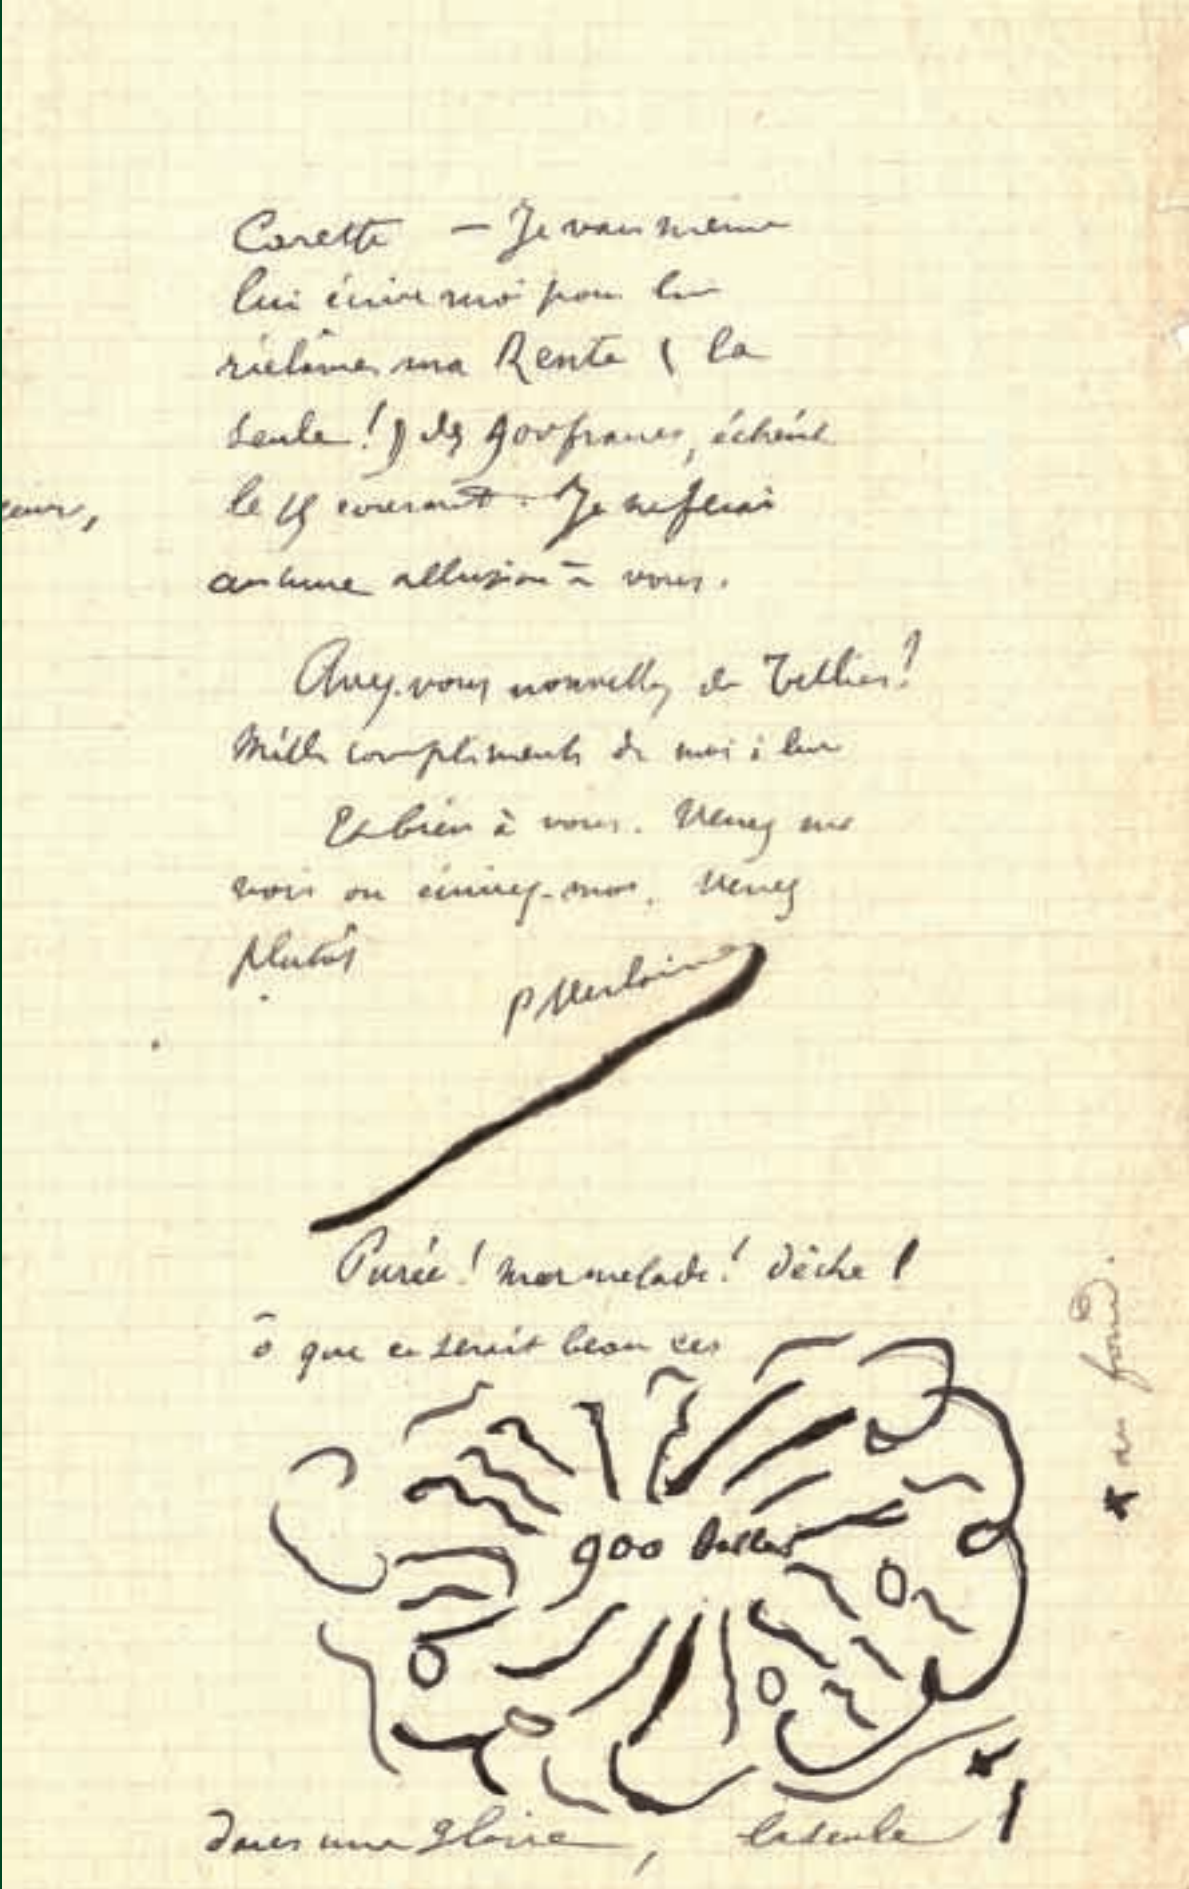 Carette — Je vais même
lui écrire moi pour lui
réclâmer ma Rente (la
seule!) de 900 francs, échéant
le 15 courant. Je ne ferai
aucune allusion à vous.
Avez-vous nouvelles de Tellier!
Mille compliments de moi à lui
Et bien à vous. Venez me
voir ou écrivez-moi. Venez
plutôt
P Verlaine
Purée! marmelade! dèche!
ô que ce serait beau ces
900 balles
dans une gloire, la seule * !
* au fond.